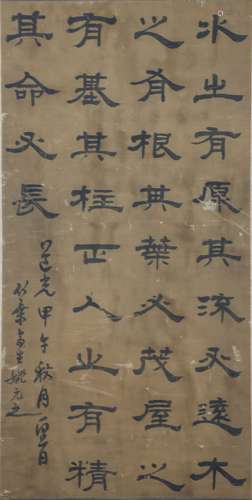 水之有原其流必遠木
之有根其葉必茂屋之
有基其柱正人之有精
其命必長
道光甲午秋月
竹葉亭生姚元之